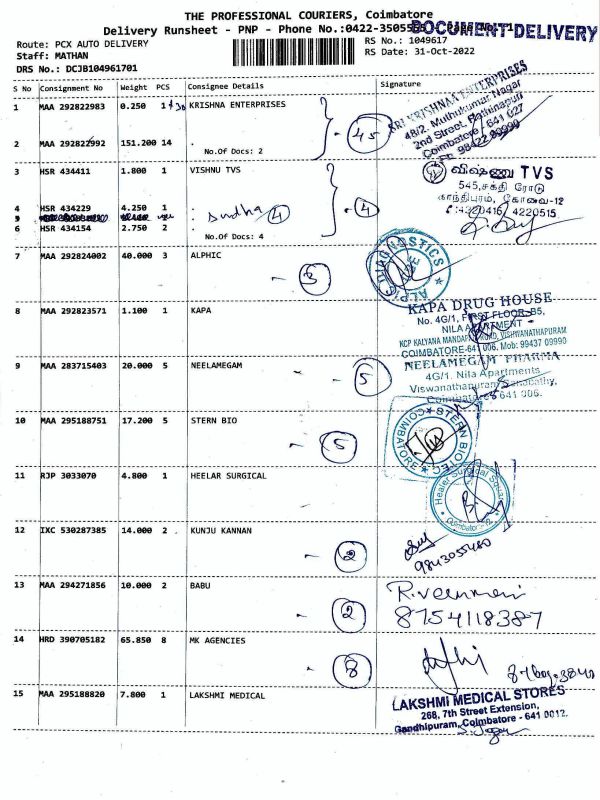 THE PROFESSIONAL COURIERS, Coimbatore
Delivery Runsheet - PNP - Phone No.:0422-3505555
DOCUMENT DELIVERY
Route: PCX AUTO DELIVERY
RS No.: 1049617
Staff: MATHAN
RS Date: 31-Oct-2022
DRS No.: DCJB104961701
S No Consignment No Weight PCS Consignee Details Signature
1 MAA 292822983 0.250 1 KRISHNA ENTERPRISES
2 MAA 292822992 151.200 14 .
No.Of Docs: 2
45
SRI KRISHNAA ENTERPRISES
48/2, Muthukumar Nagar
2nd Street, Rathinapuri
Coimbatore - 641 027
3 HSR 434411 1.800 1 VISHNU TVS
4 HSR 434229 4.250 1 .
Sudha 4
6 HSR 434154 2.750 2 .
No.Of Docs: 4
4
விஷ்ணு TVS
545, சக்தி ரோடு
காந்திபுரம், கோவை-12
4220515
7 MAA 292824002 40.000 3 ALPHIC
3
DIAGNOSTICS
8 MAA 292823571 1.100 1 KAPA
KAPA DRUG HOUSE
No. 4G/1, FIRST FLOOR, B5,
NILA APARTMENT -
KCP KALYANA MANDAPAM ROAD, VISHWANATHAPURAM
COIMBATORE-641 006, Mob: 99437 09990
9 MAA 283715403 20.000 5 NEELAMEGAM
5
NEELAMEGAM PHARMA
4G/1. Nila Apartments
Viswanathapuram,
Coimbatore - 641 006.
10 MAA 295188751 17.200 5 STERN BIO
5
STERN BIOTEC
COIMBATORE
11 RJP 3033070 4.800 1 HEELAR SURGICAL
Healer Surgical Square
Coimbatore-12
12 IXC 530287385 14.000 2 KUNJU KANNAN
2
9843055480
13 MAA 294271856 10.000 2 BABU
2
8754118387
14 HRD 390705182 65.850 8 MK AGENCIES
8
15 MAA 295188820 7.800 1 LAKSHMI MEDICAL
LAKSHMI MEDICAL STORES
268, 7th Street Extension,
Gandhipuram, Coimbatore - 641 0012.